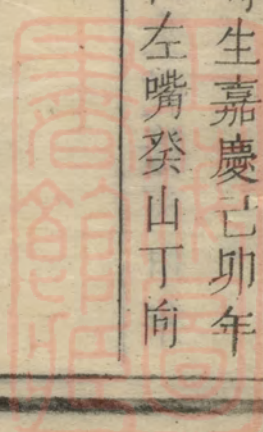 生嘉慶己卯年
左嘴癸山丁向